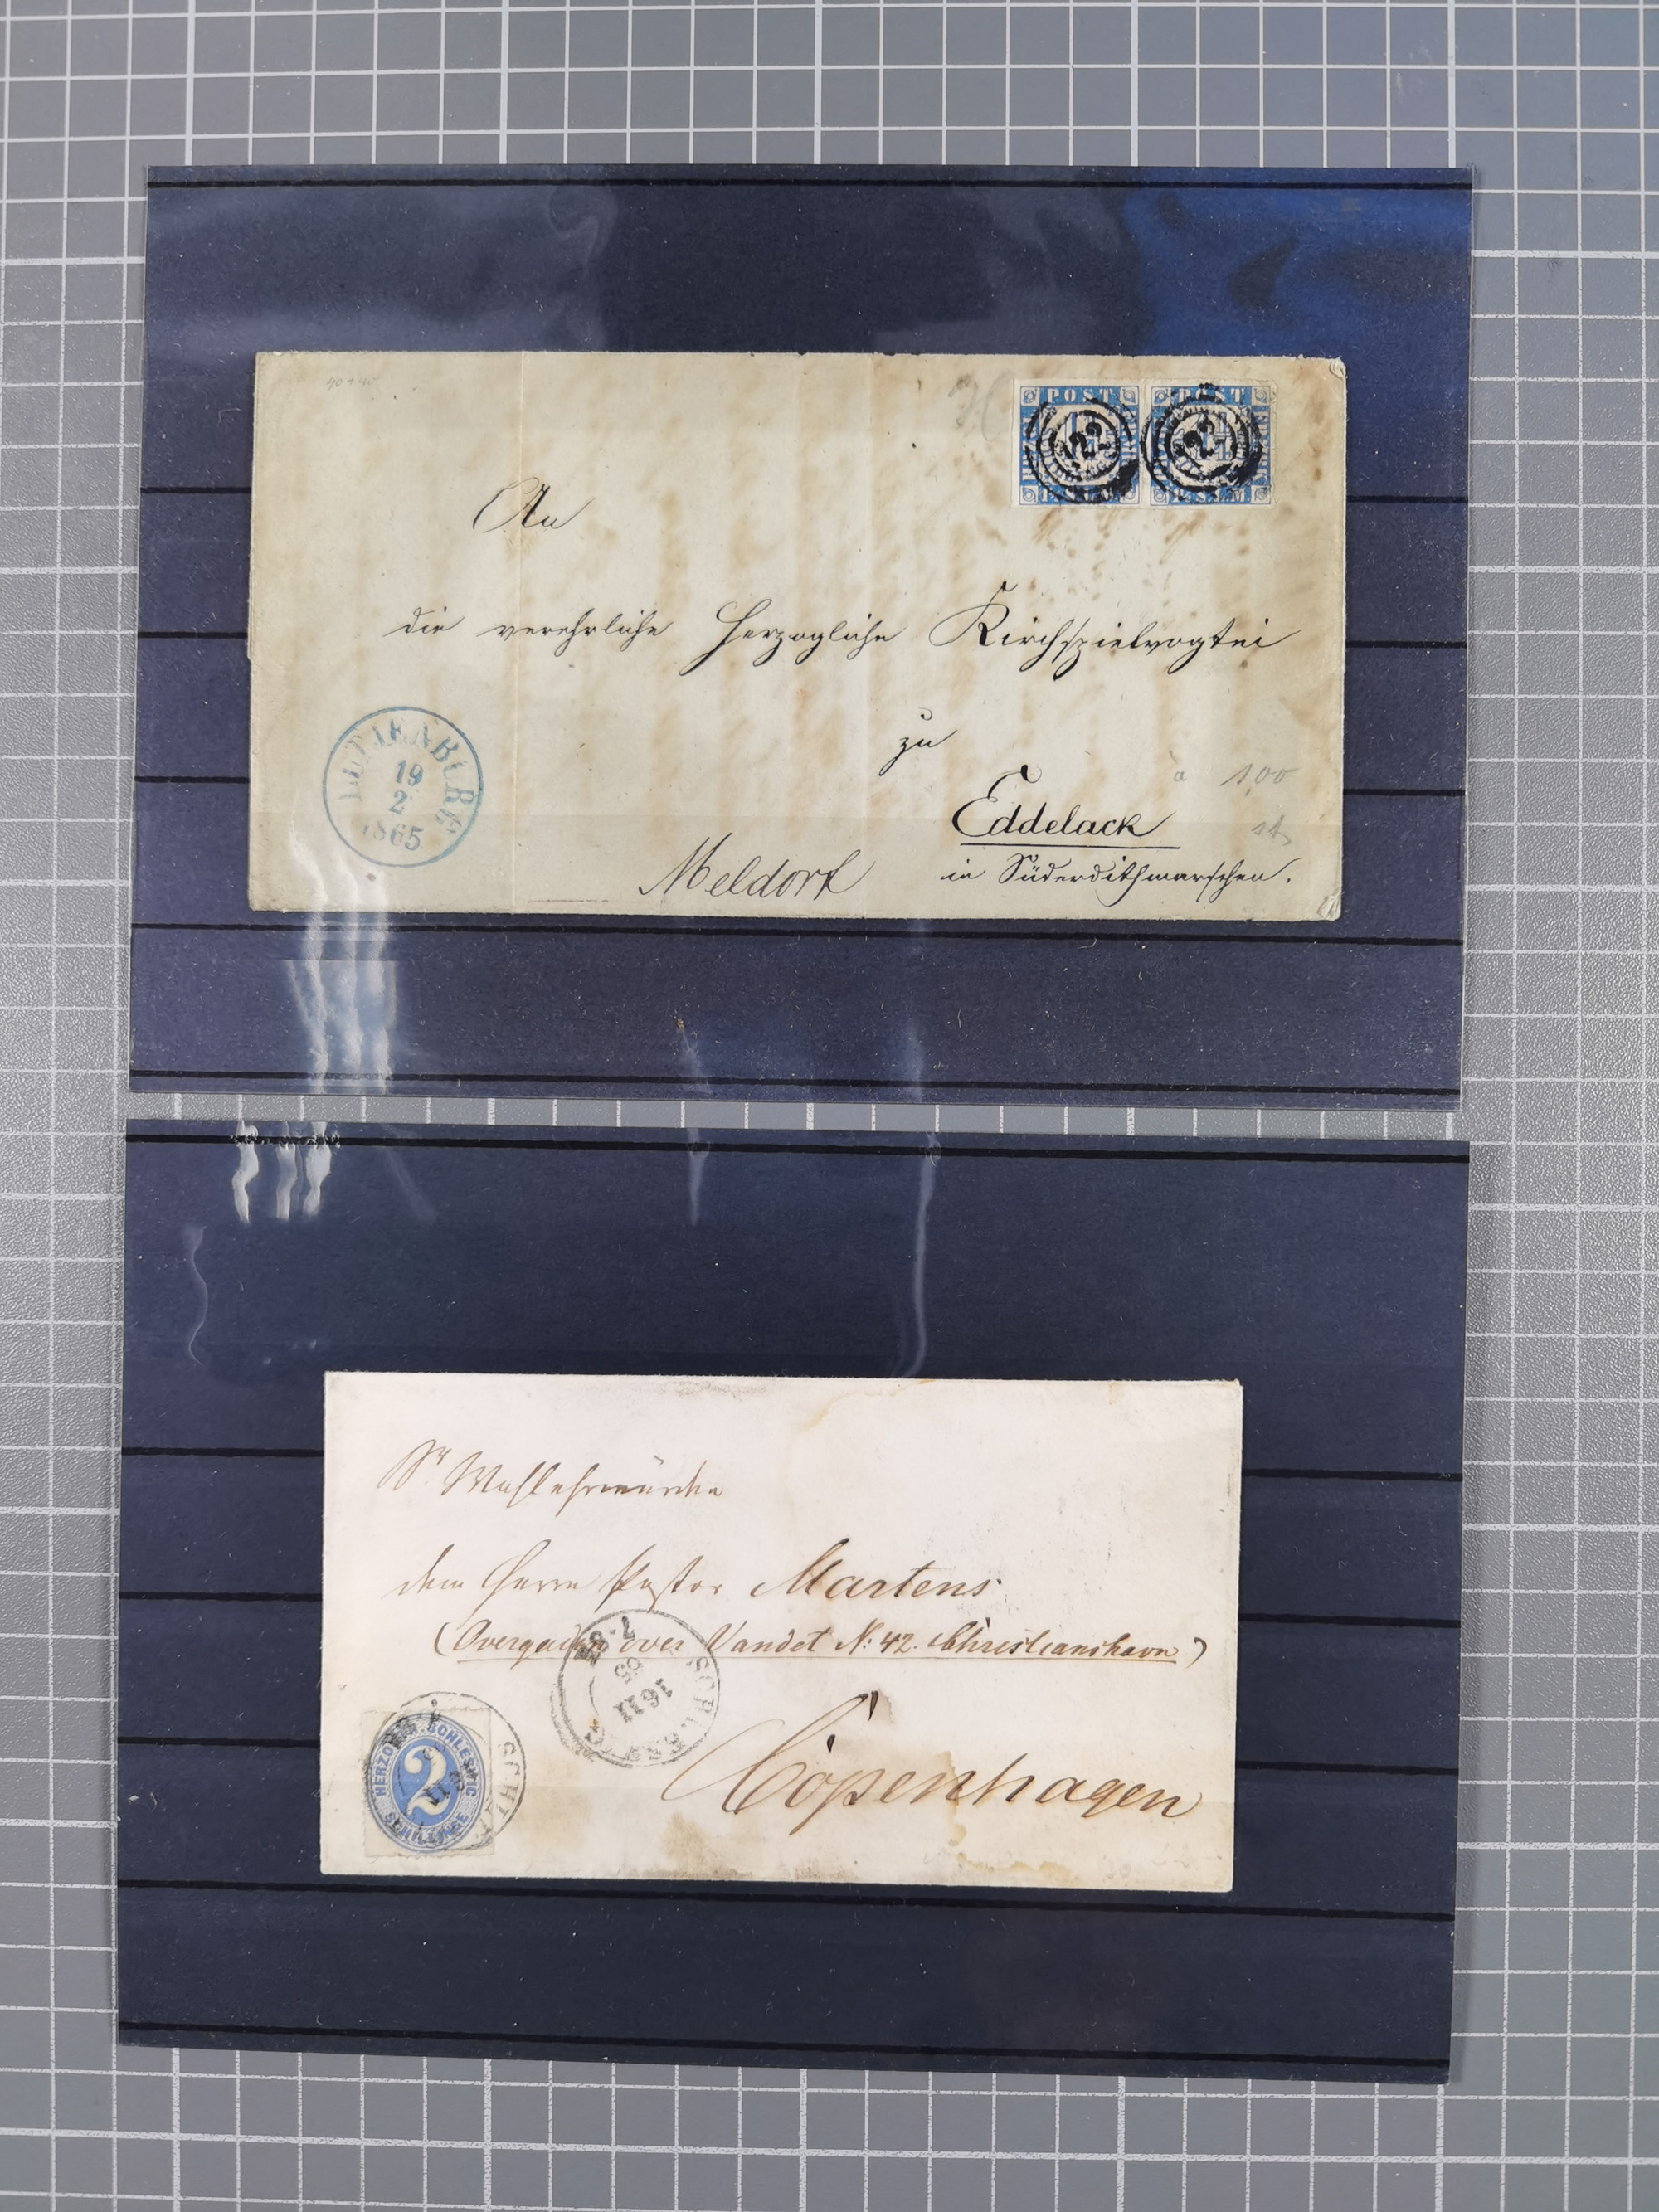 40 + 40
POST POST
122 122
An
die verehrliche Herzogliche Kirchspielvogtei
zu
à 1,00
Eddelack
in Süderdithmarschen.
Meldorf
LÜTJENBURG
19
2
1865
Sr Wohlehrwürden
dem Herrn Pastor Martens
(Overgaden over Vandet N: 42. Christianshavn)
Copenhagen
SCHLESWIG
16 11
65
HERZOGTH. SCHLESWIG
2
SCHILLINGE